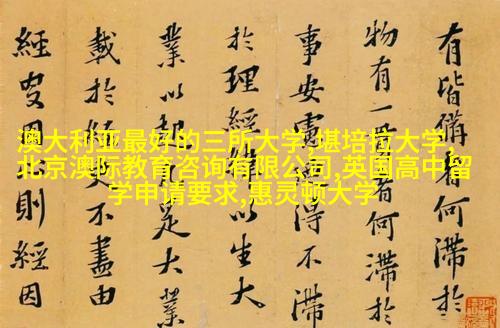 澳大利亚最好的三所大学,堪培拉大学,
北京澳际教育咨询有限公司,英国高中留
学申请要求,惠灵顿大学
有皆備有何滯於
物有一有何滯於
事安慮得不滯
於理經以生大
業以足大業
載於不盡由
經因則經因